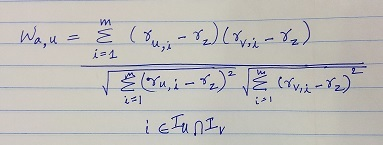 W_{a,u} = \frac{\sum_{i=1}^{m} (r_{u,i} - r_z)(r_{v,i} - r_z)}{\sqrt{\sum_{i=1}^{m} (r_{u,i} - r_z)^2} \sqrt{\sum_{i=1}^{m} (r_{v,i} - r_z)^2}}
i ∈ I_u ∩ I_v